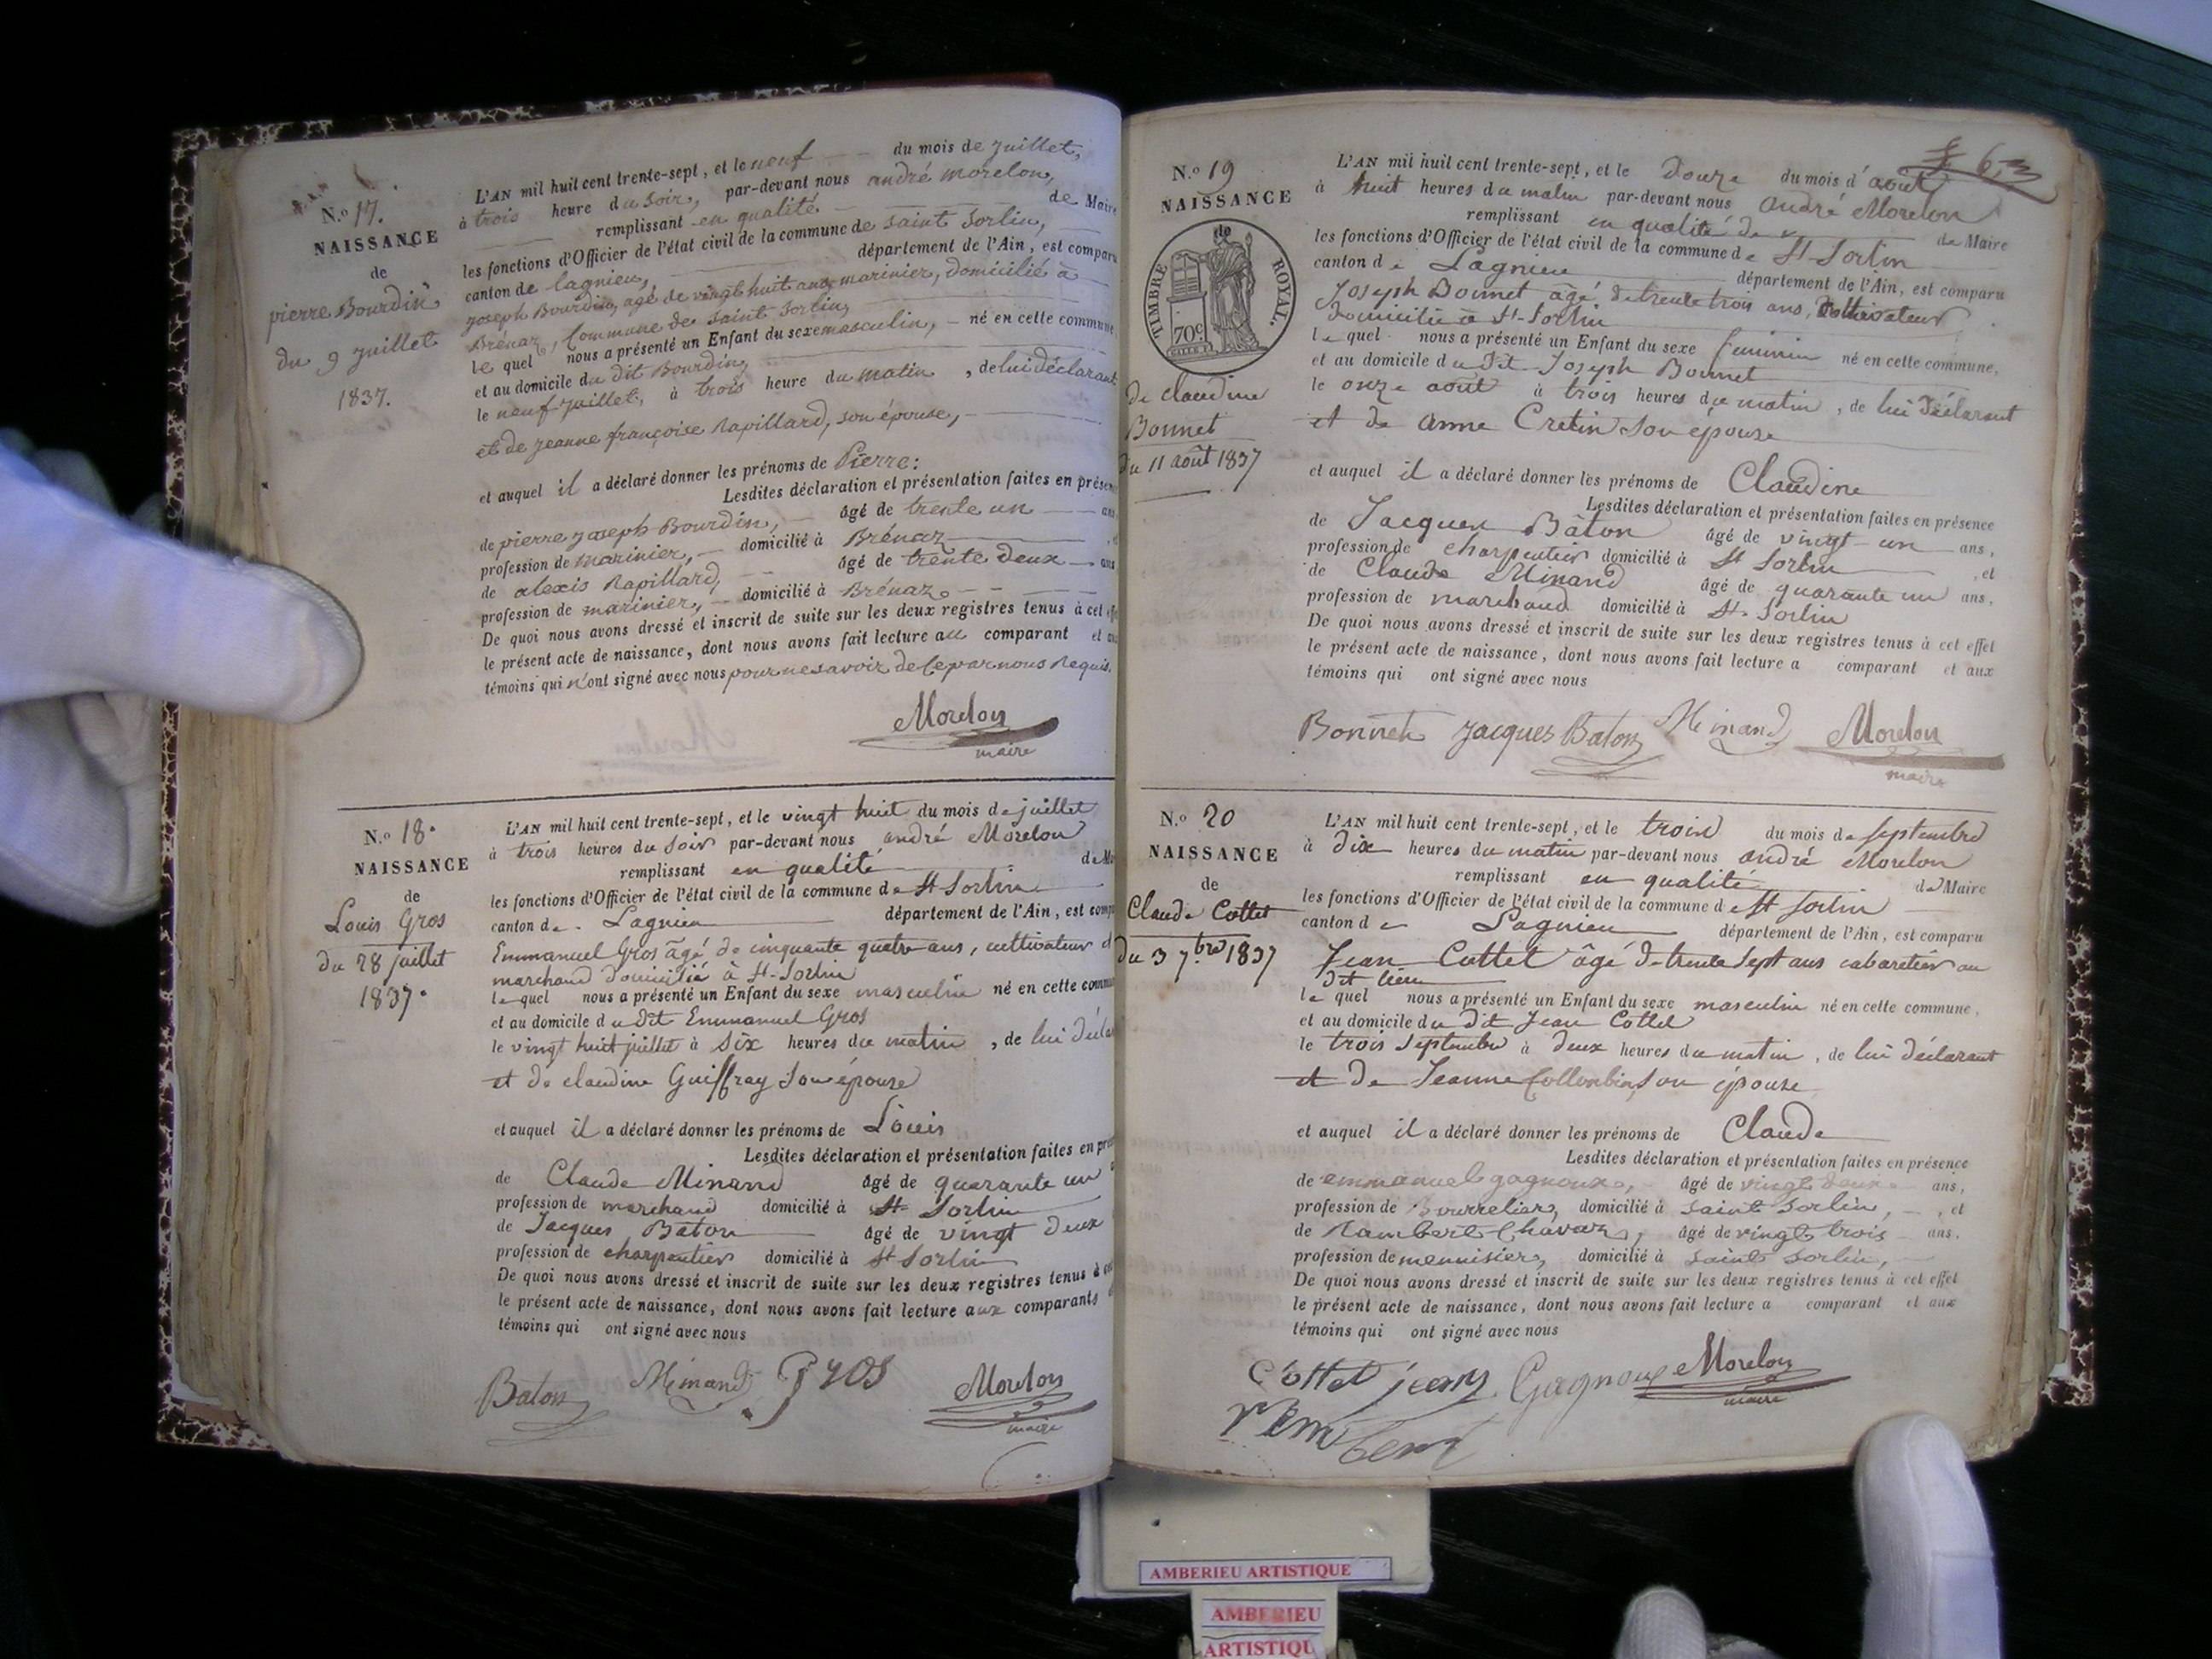 N.o 17.
NAISSANCE
de
pierre Bourdin
du 9 juillet
1837.
L'AN mil huit cent trente-sept, et le neuf du mois de juillet,
à trois heure du soir, par-devant nous andré morelon,
remplissant en qualité de Maire
les fonctions d'Officier de l'état civil de la commune de saint sorlin,
canton de lagnieu, département de l'Ain, est comparu
joseph Bourdin, agé de vingt huit ans marinier, domicilié à
Brénaz, Commune de saint sorlin,
le quel nous a présenté un Enfant du sexe masculin, né en cette commune
et au domicile du dit Bourdin,
le neuf juillet, à trois heure du matin, de lui déclarant
et de jeanne françoise Rapillard, son épouse,
et auquel il a déclaré donner les prénoms de Pierre:
Lesdites déclaration et présentation faites en présen
de pierre joseph Bourdin, âgé de trente un ans
profession de marinier, domicilié à Brénaz
de alexis Rapillard, âgé de trente deux ans
profession de marinier, domicilié à Brénaz
De quoi nous avons dressé et inscrit de suite sur les deux registres tenus à cet effe
le présent acte de naissance, dont nous avons fait lecture au comparant et au
témoins qui n'ont signé avec nous pour ne savoir de ce par nous Requis.
Morelon
maire
N.o 18.
NAISSANCE
de
Louis Gros
du 28 juillet
1837.
L'AN mil huit cent trente-sept, et le vingt huit du mois de juillet
à trois heures du soir par-devant nous andré Morelon
remplissant en qualité de M
les fonctions d'Officier de l'état civil de la commune de St Sorlin
canton de Lagnieu département de l'Ain, est comp
Emmanuel Gros âgé de cinquante quatre ans, cultivateur
marchand domicilié à St-Sorlin
le quel nous a présenté un Enfant du sexe masculin né en cette commu
et au domicile du dit Emmanuel Gros
le vingt huit juillet à six heures du matin, de lui décla
et de claudine Guiffray son épouse
et auquel il a déclaré donner les prénoms de Louis
Lesdites déclaration et présentation faites en pré
de Claude Minand âgé de quarante un
profession de marchand domicilié à St Sorlin
de Jacques Baton âgé de vingt deux
profession de charpentier domicilié à St Sorlin
De quoi nous avons dressé et inscrit de suite sur les deux registres tenus à c
le présent acte de naissance, dont nous avons fait lecture aux comparants
témoins qui ont signé avec nous
Baton Minand gros Morelon
maire
N.o 19
NAISSANCE
de
TIMBRE ROYAL.
70c
de claudine
Bonnet
du 11 août 1837
L'AN mil huit cent trente-sept, et le Douze du mois d'août
à huit heures du matin par-devant nous André Morelon
remplissant en qualité de Maire
les fonctions d'Officier de l'état civil de la commune de St-Sorlin
canton de Lagnieu département de l'Ain, est comparu
Joseph Bonnet âgé de trente trois ans, Cultivateur
domicilié à St-Sorlin
le quel nous a présenté un Enfant du sexe feminin né en cette commune,
et au domicile du dit Joseph Bonnet
le onze août à trois heures du matin, de lui déclarant
et de anne Cretin son épouse
et auquel il a déclaré donner les prénoms de Claudine
Lesdites déclaration et présentation faites en présence
de Jacques Bâton âgé de vingt-un ans,
profession de charpentier domicilié à St Sorlin, et
de Claude Minand âgé de quarante un ans,
profession de marchand domicilié à St-Sorlin
De quoi nous avons dressé et inscrit de suite sur les deux registres tenus à cet effet
le présent acte de naissance, dont nous avons fait lecture a comparant et aux
témoins qui ont signé avec nous
Bonnet Jacques Baton Minand Morelon
maire
N.o 20
NAISSANCE
de
Claude Cottet
du 3 7.bre 1837
L'AN mil huit cent trente-sept, et le trois du mois de septembre
à dix heures du matin par-devant nous andré Morelon
remplissant en qualité de Maire
les fonctions d'Officier de l'état civil de la commune de St Sorlin
canton de Lagnieu département de l'Ain, est comparu
Jean Cottet âgé de trente sept ans cabaretier au
dit lieu
le quel nous a présenté un Enfant du sexe masculin né en cette commune,
et au domicile du dit Jean Cottet
le trois septembre à deux heures du matin, de lui déclarant
et de Jeanne Collombin son épouse
et auquel il a déclaré donner les prénoms de Claude
Lesdites déclaration et présentation faites en présence
de emmanuel gagnoux, âgé de vingt deux ans,
profession de Bourrelier, domicilié à saint sorlin, et
de Rambert Chavaz, âgé de vingt trois ans.
profession de menuisier, domicilié à saint sorlin,
De quoi nous avons dressé et inscrit de suite sur les deux registres tenus à cet effet
le présent acte de naissance, dont nous avons fait lecture a comparant et aux
témoins qui ont signé avec nous
Cottet jean Gagnoux Morelon
maire
AMBERIEU ARTISTIQUE
AMBERIEU
ARTISTIQU